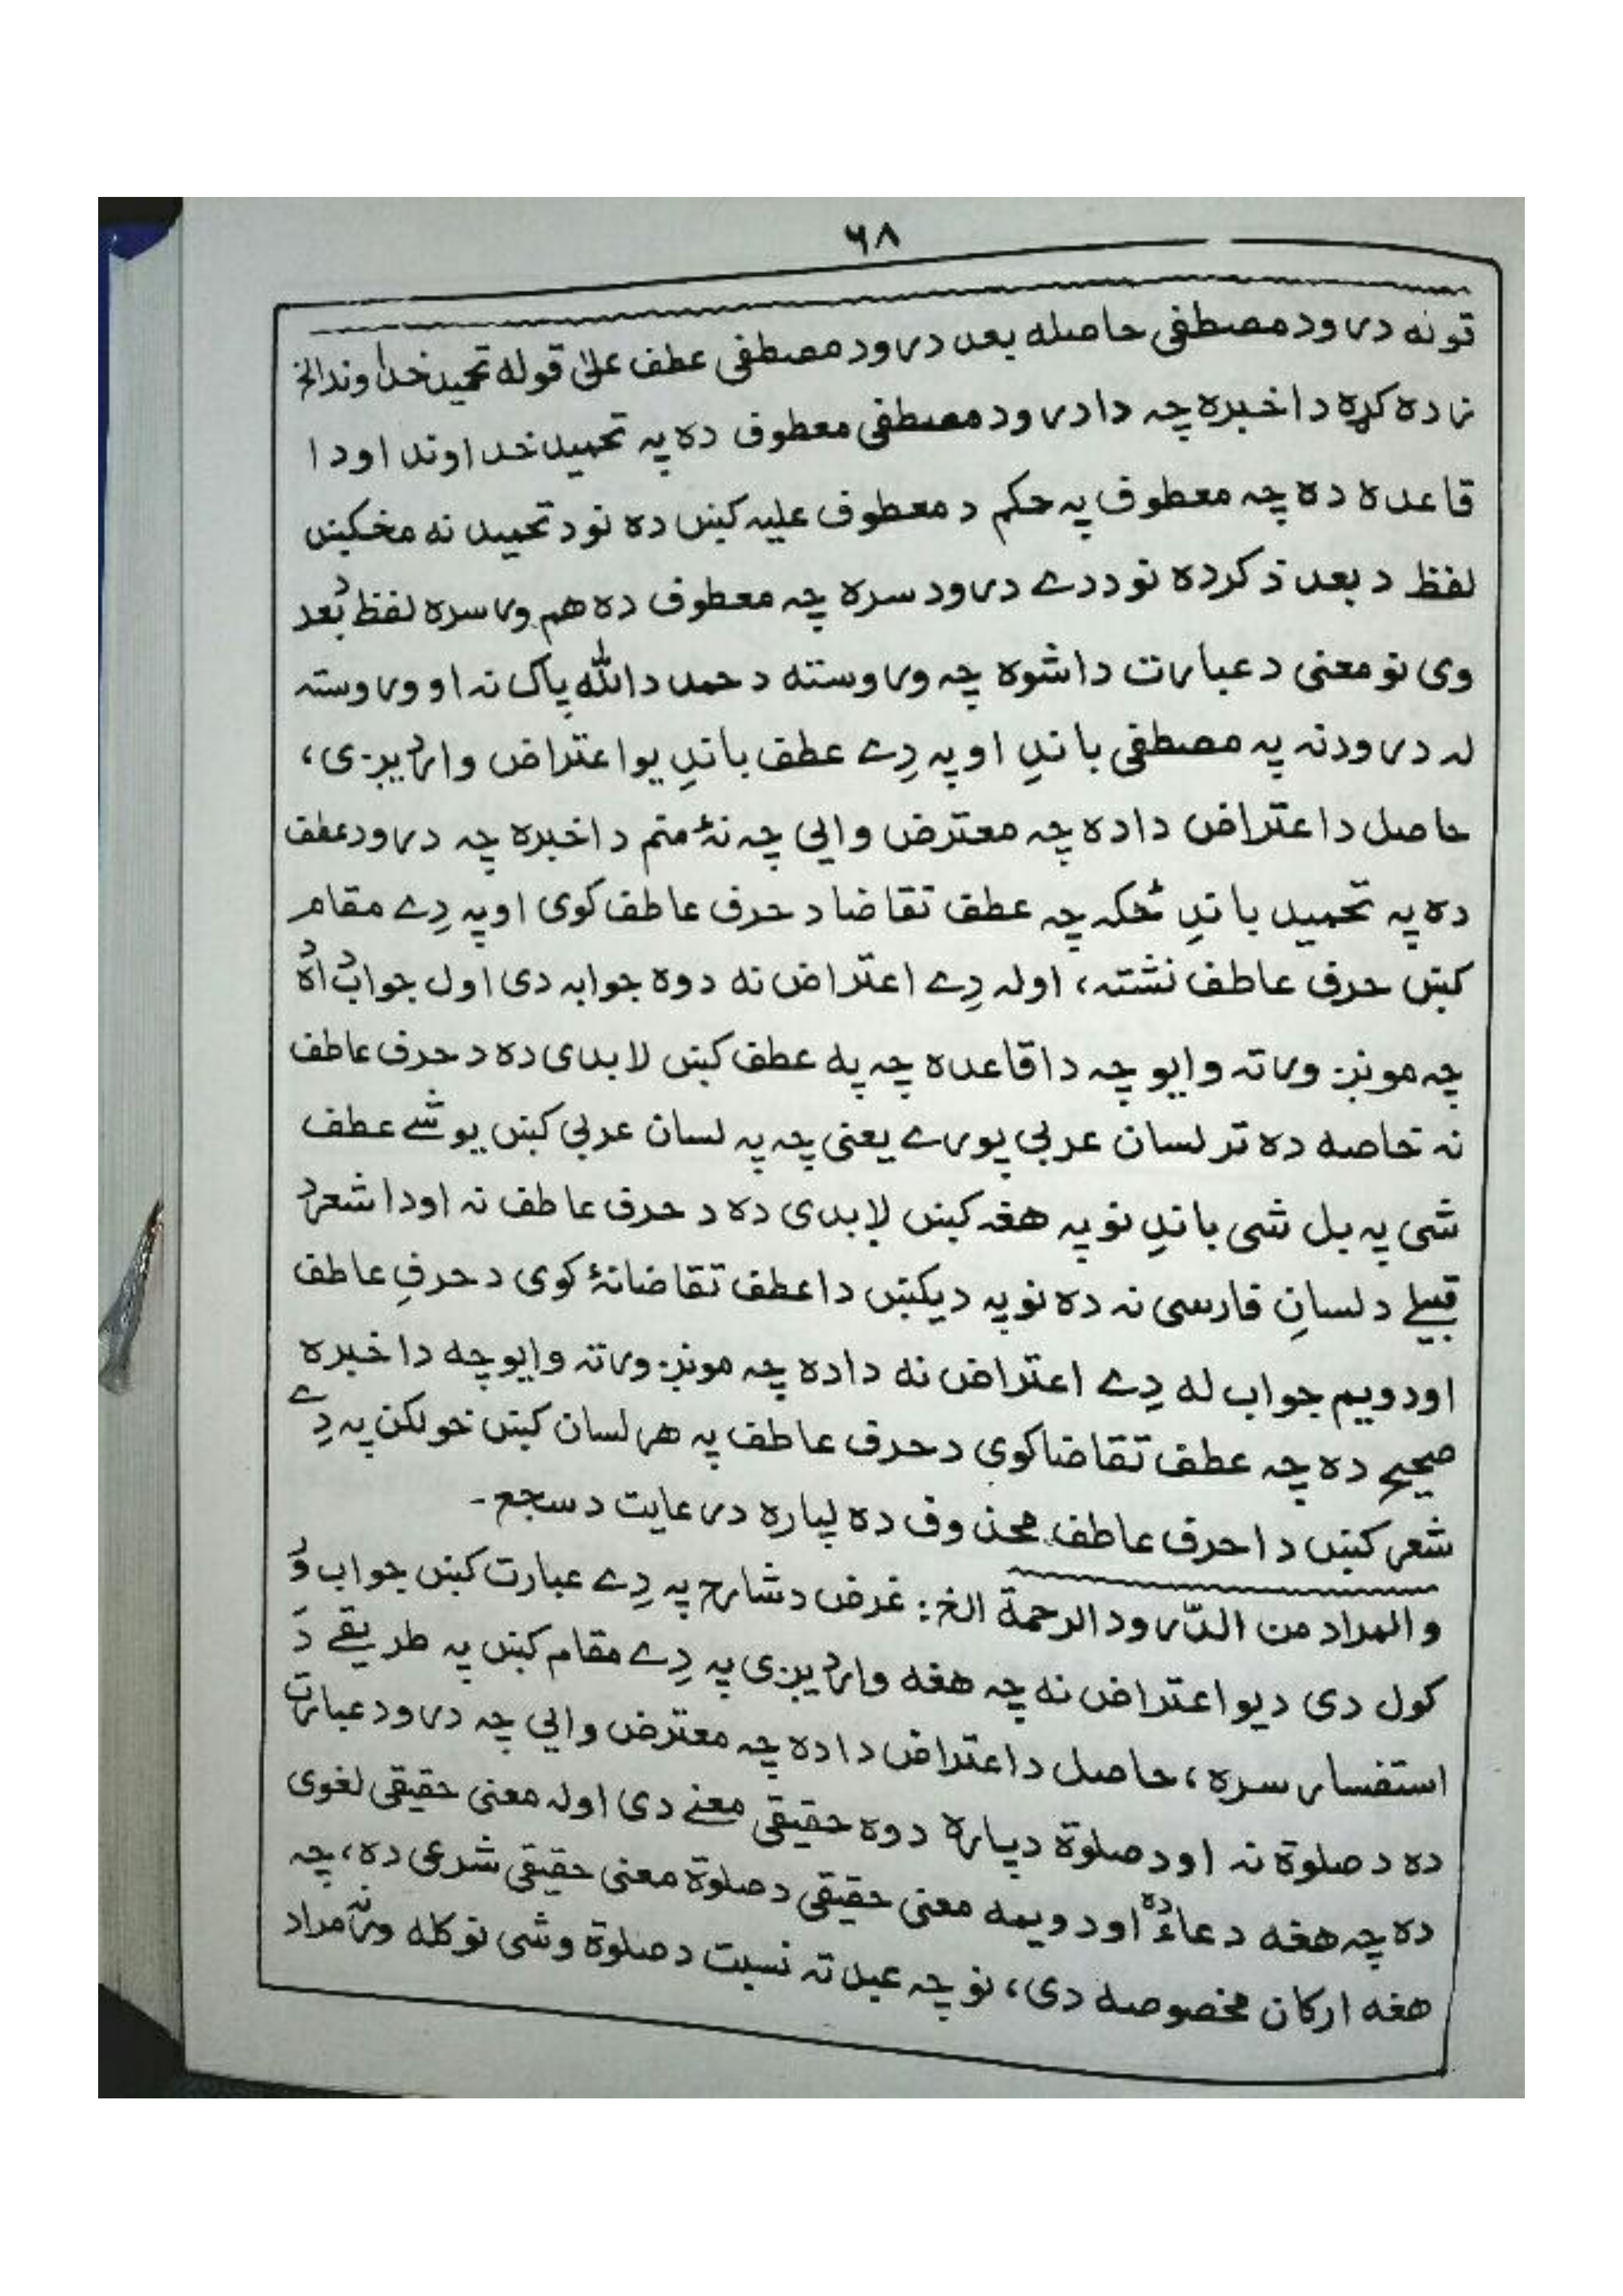 ۶۸
قوله درود مصطفی حاصله بعد درود مصطفی عطف علیٰ قوله تحمید خداوند الخ
زاده کړه داخبره چه دا درود مصطفی معطوف ده په تحمید خداوند اودا
قاعده ده چه معطوف په حکم د معطوف علیه کښں ده نو د تحمید نه مخکښں
لفظ د بعد ذکر ده نو ددے درود سره چه معطوف ده هم ورسره لفظ دُ بعد
وی نو معنی د عبارت داشوه چه وروسته د حمد دالله پاک نه او وروسته
له درود نه په مصطفی باندِ او په دِے عطف باندِ یو اعتراض واردیږی،
حاصل د اعتراض داده چه معترض وایی چه نهٔ منم داخبره چه درود عطف
ده په تحمید باندِ ځکه چه عطف تقاضا د حرف عاطف کوی او په دِے مقام
کښں حرف عاطف نشته، اوله دِے اعتراض نه دوه جوابه دی اول جواب دُ اه
چه مونږ ورته وایو چه دا قاعده چه په عطف کښں لابدی ده د حرف عاطف
نه خاصه ده تر لسان عربی پورے یعنی چه په لسان عربی کښں یو شے عطف
شی په بل شی باندِ نو په هغه کښں لابدی ده د حرف عاطف نه اودا شعر دُ
قبیلے د لسانِ فارسی نه ده نو په دیکښں دا عطف تقاضا نهٔ کوی د حرفِ عاطف
اودویم جواب له دِے اعتراض نه داده چه مونږ ورته وایو چه داخبره
صحیح ده چه عطف تقاضا کوی د حرف عاطف په هر لسان کښں خو لکن په دِے
شعر کښں دا حرف عاطف محذوف ده لپاره د رعایت د سجع۔
والمراد من الدّرود الرحمة الخ: غرض د شارح په دِے عبارت کښں جواب وُ
کول دی د یو اعتراض نه چه هغه واردیږی په دِے مقام کښں په طریقے دَ
استفسار سره، حاصل د اعتراض داده چه معترض وایی چه درود عبارت
ده د صلوة نه اود صلوة دپاره دوه حقیقی معنے دی اوله معنی حقیقی لغوی
ده چه هغه دعاءٌ ده اودویمه معنی حقیقی د صلوة معنی حقیقی شرعی ده، چه
هغه ارکان مخصوصه دی، نو چه عبد ته نسبت د صلوة وشی نو کله ورنه مراد